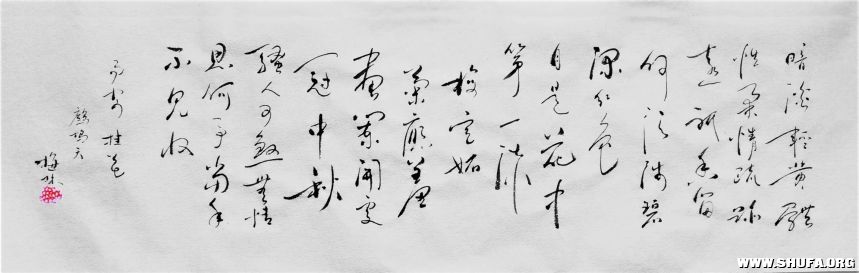 暗淡輕黄體
性柔情疏跡
遠祇香留
何須淺碧
深紅色
自是花中
第一流
梅定妬
菊應羞
畫闌開處
冠中秋
騷人可煞無情
思何事當年
不見收
桂花
鷓鴣天
WWW.SHUFA.ORG